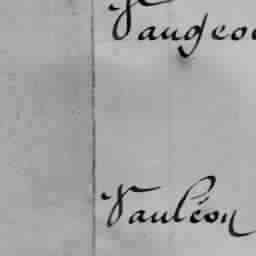 Vaugeo
Vauléon